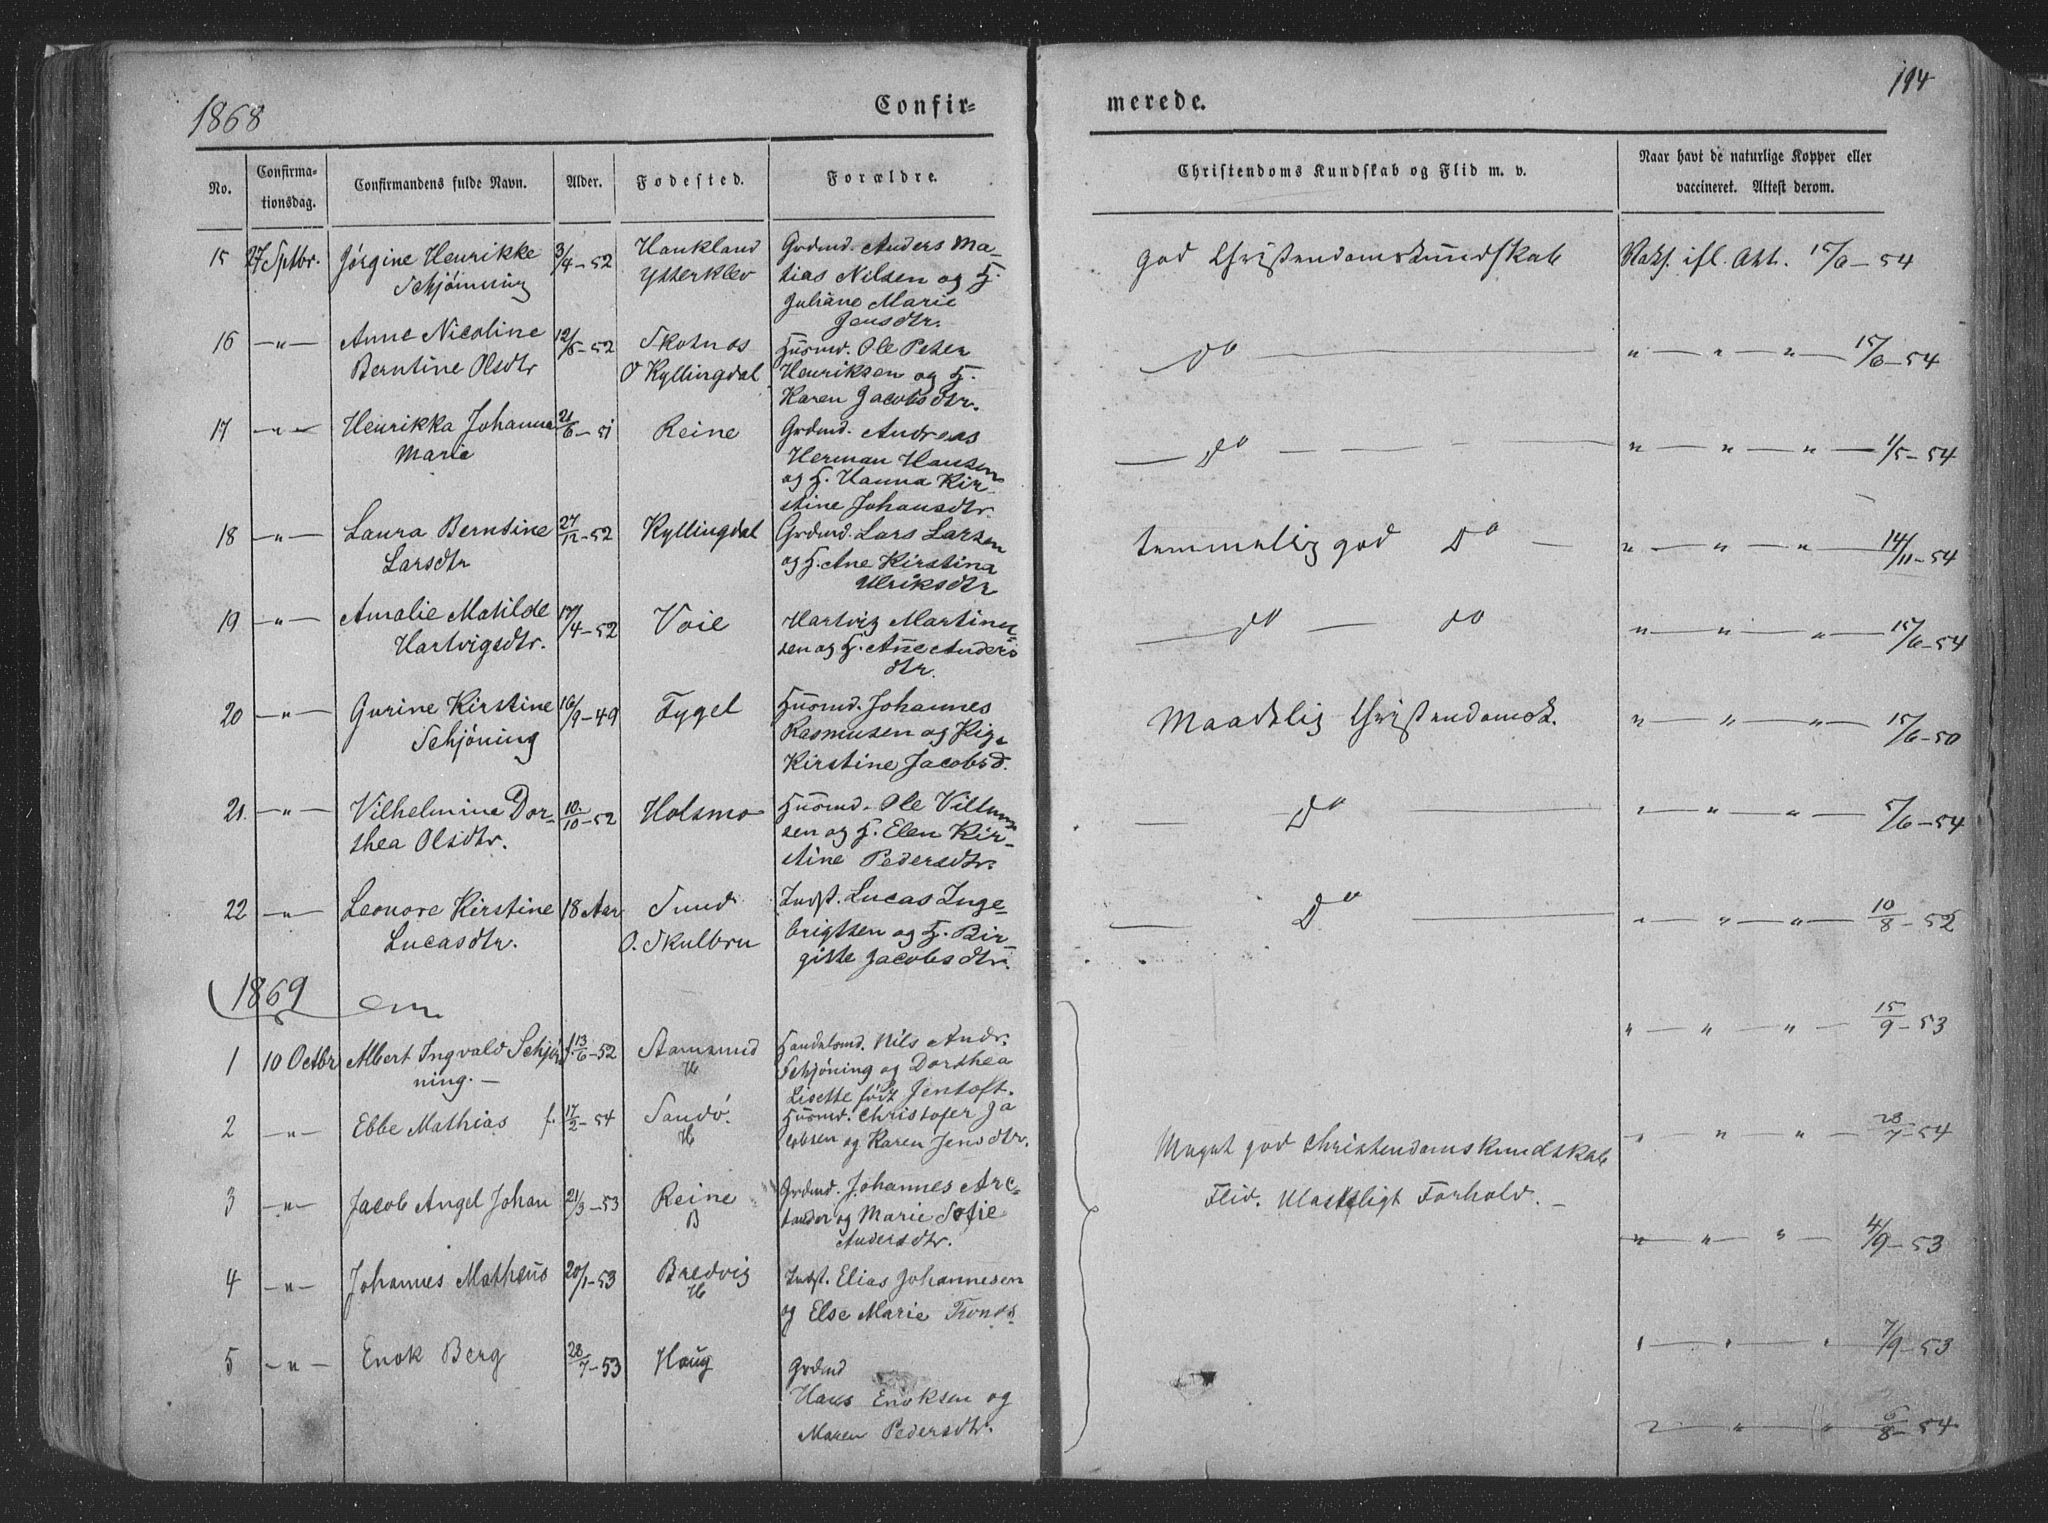 194
1868
Confir=
merede.
No.
Confirma-
tionsdag.
Confirmandens fulde Navn.
Alder.
Fødested.
Forældre.
Christendoms Kundskab og Flid m. v.
Naar havt de naturlige Kopper eller
vaccineret. Attest derom.
15 27 Sptbr. Jørgine Henrikke 3/4-52 Haukland Grdmd. Anders Ma- god Christendomskundskab Vaks. ifl. Att. 15/6-54
Schjønning Ytterklev tias Nilsen og H.
Juliane Marie
Jensdtr.
16 -"- Anne Nicoline 12/5-52 Skotnes Husmd. Ole Peter do " " " 15/6-54
Berntine Olsdtr O Kyllingdal Henriksen og H.
Karen Jacobsdtr.
17 -"- Henrikka Johanna 21/6-51 Reine Grdmd. Andreas do " " " 1/5-54
Marie Herman Hansen
og H. Hanna Kir-
stine Johansdtr.
18 -"- Laura Berntine 27/12-52 Kyllingdal Grdmd. Lars Larsen temmelig god Do " " " 14/11-54
Larsdtr og H. Ane Kirstina
Ulriksdtr
19 -"- Amalie Matilde 17/4-52 Voie Hartvig Martinu- do do " " " 15/6-54
Hartvigsdtr. sen og H. Ane Anders
dtr.
20 -"- Gurine Kirstine 16/9-49 Fygel Husmd. Johannes Maadelig Christendomsk. " " " 15/6-50
Schjøning Rasmusen og Pig.
Kirstine Jacobsd.
21. -"- Vilhelmine Dor- 10/10-52 Holsmo Husmd. Ole Villum Do " " " 5/6-54
thea Olsdtr. sen og H. Elen Kir-
stine Pedersdtr.
22 -"- Leonore Kirstine 18 Aar Sund Indst. Lucas Inge- Do " " " 10/8-52
Lucasdtr. O. Skulbru brigtsen og H. Bir-
gitte Jacobsdtr.
1869
1 10 Octbr Albert Ingvald Schjø- f. 13/6-52 Stamsund Handelsmd. Nils Andr. " " " 15/9-53
ning.- H Schjøning og Dorthea
Lisette født Jentoft.
2 -"- Ebbe Mathias f. 17/2-54 Sandø. Husmd. Christofer Ja " " " 28/7-54
H cobsen og Karen Jensdtr.
Meget god Christendomskundskab
3 -"- Jacob Angel Johan 21/3-53 Reine Grdmd. Johannes Arc- Flid.
B tander og Marie Sofie
Andersdtr. " " " 4/9-53
4 -"- Johannes Matheus 20/1-53 Bredvig Indst. Elias Johannesen
H og Else Marie Tronds.
" " " 7/9-53
5 -"- Enok Berg 28/7-53 Haug Grdmd
Hans Enoksen og
Maren Pedersdtr. " " " 6/8-54